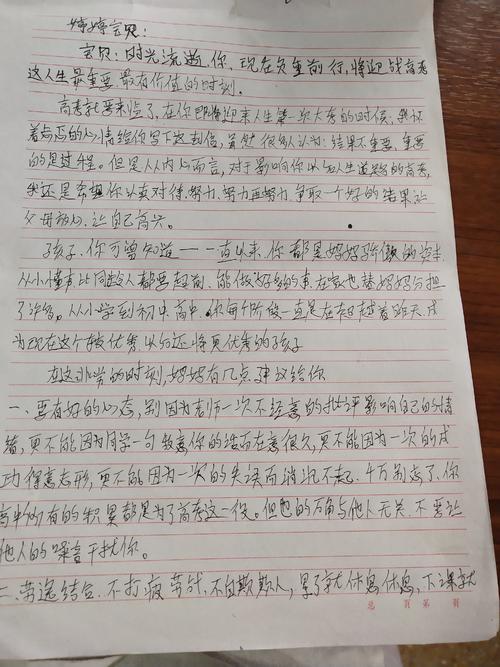 婷婷宝贝:
宝贝:时光流逝,你、现在负重前行,将迎战高考
这人生最重要最有价值的时刻.
高考就要来临了,在你即将迎来人生第一次大考的时候,我怀
着忐忑的心情给你写下这封信,虽然很多人认为:结果不重要,重要
的是过程。但是从内心而言,对于影响你以后人生道路的高考,
我还是希望你认真对待,努力、努力再努力,争取一个好的结果让
父母放心,让自己高兴。
孩子,你可曾知道——一直以来,你都是妈妈骄傲的资本
从小懂事比同龄人都要起前,能做好多的事,在家也替妈妈分担
了许多。从小学到初中高中,你每个阶段一直是在超越着昨天,成
为现在这个较优秀以后还将更优秀的孩子
在这非常的时刻,妈妈有几点建议给你
一、要有好的心态,别因为老师一次不经意的批评影响自己的情
绪,更不能因为同学一句敌意你的话而在意很久,更不能因为一次的成
功得意忘形,更不能因为一次的失误而消沉不起.千万别忘了,你
高中所有的积累都是为了高考这一役。但它的与他人无关.不要让
他人的噪音干扰你。
二、劳逸结合.不打疲劳战,不自欺欺人,累了就休息休息,下课就
总 页 第 页